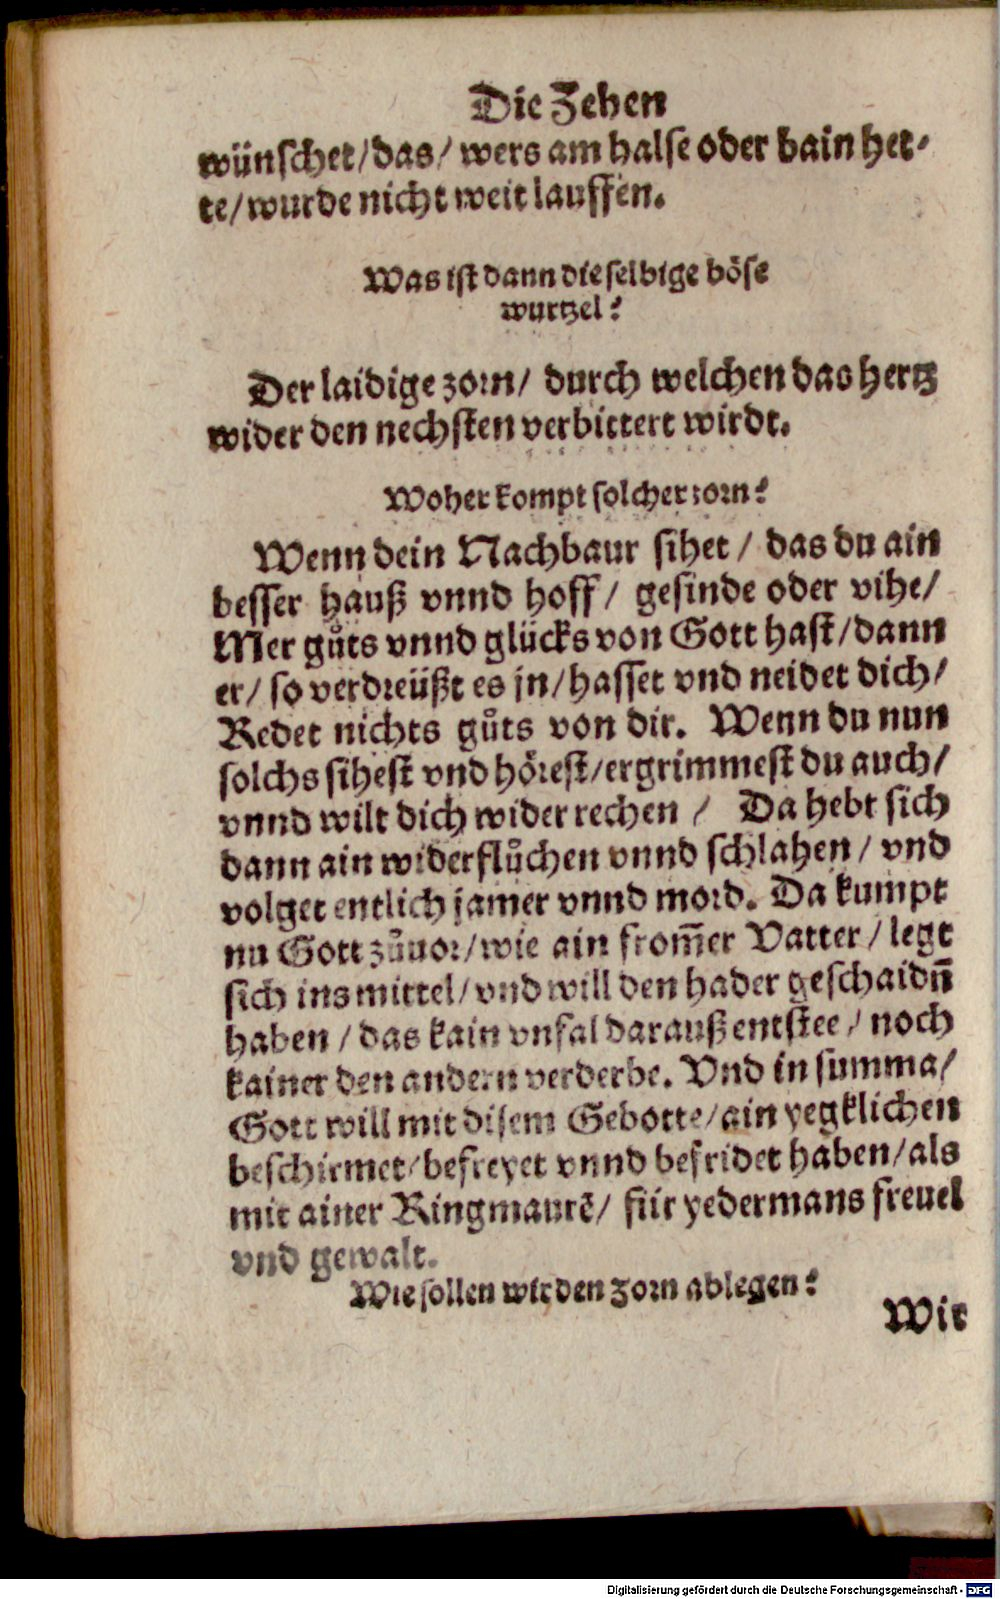 Die Zehen
wünschet/das/ wers am halse oder bain het-
te/wurde nicht weit lauffen.
Was ist dann die selbige böse
wurtzel?
Der laidige zorn/ durch welchen das hertz
wider den nechsten verbittert wirdt.
Woher kompt solcher zorn?
Wenn dein Nachbaur sihet / das du ain
besser hauß vnnd hoff / gesinde oder vihe/
Mer gůts vnnd glücks von Gott hast/dann
er/ so verdreüßt es jn/hasset vnd neidet dich/
Redet nichts gůts von dir. Wenn du nun
solchs sihest vnd hörest/ergrimmest du auch/
vnnd wilt dich wider rechen / Da hebt sich
dann ain widerflůchen vnnd schlahen / vnd
volget entlich jamer vnnd mord. Da kumpt
nu Gott zůuor/wie ain from̄er Vatter / legt
sich ins mittel/ vnd will den hader geschaidn̄
haben / das kain vnfal darauß entstee / noch
kainer den andern verderbe. Vnd in summa/
Gott will mit disem Gebotte/ain yegklichen
beschirmet/befreyet vnnd befridet haben/als
mit ainer Ringmaurē/ für yedermans freuel
vnd gewalt.
Wie sollen wir den zorn ablegen?
Wir
Digitalisierung gefördert durch die Deutsche Forschungsgemeinschaft - DFG